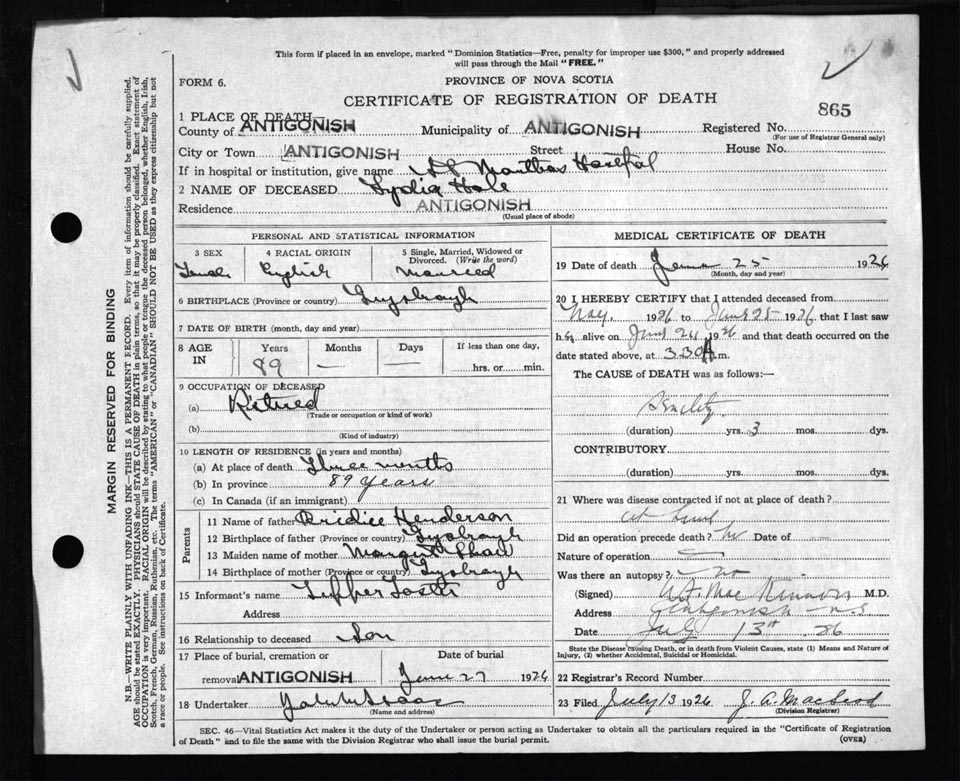 This form if placed in an envelope, marked "Dominion Statistics—Free, penalty for improper use $300," and properly addressed
will pass through the Mail "FREE."
FORM 6.
PROVINCE OF NOVA SCOTIA
CERTIFICATE OF REGISTRATION OF DEATH
865
1 PLACE OF DEATH—
County of ANTIGONISH Municipality of ANTIGONISH Registered No.
(For use of Registrar General only)
City or Town ANTIGONISH Street House No.
If in hospital or institution, give name St Marthas Hospital
2 NAME OF DECEASED Lydia
Residence ANTIGONISH
(Usual place of abode)
PERSONAL AND STATISTICAL INFORMATION
3 SEX 4 RACIAL ORIGIN 5 Single, Married, Widowed or
Divorced. (Write the word)
Female English Married
6 BIRTHPLACE (Province or country) Guysborough
7 DATE OF BIRTH (month, day and year)
8 AGE IN Years Months Days If less than one day,
89 — — hrs. or min.
9 OCCUPATION OF DECEASED
(a) Retired
(Trade or occupation or kind of work)
(b)
(Kind of industry)
10 LENGTH OF RESIDENCE (in years and months)
(a) At place of death Three months
(b) In province 89 years
(c) In Canada (if an immigrant)
Parents
11 Name of father Henderson
12 Birthplace of father (Province or country)
13 Maiden name of mother
14 Birthplace of mother (Province or country)
15 Informant's name
Address
16 Relationship to deceased Son
17 Place of burial, cremation or Date of burial
removal ANTIGONISH June 27 1926
18 Undertaker
(Name and address)
MEDICAL CERTIFICATE OF DEATH
19 Date of death June 25 1926
(Month, day and year)
20 I HEREBY CERTIFY that I attended deceased from
1926 to June 25 1926 that I last saw
h alive on June 24 1926 and that death occurred on the
date stated above, at 3.30 A.m.
The CAUSE of DEATH was as follows:—
Senility
(duration) yrs. 3 mos. dys.
CONTRIBUTORY
(duration) yrs. mos. dys.
21 Where was disease contracted if not at place of death?
at home
Did an operation precede death? No Date of
Nature of operation
Was there an autopsy? no
(Signed) Mac Kinnon M.D.
Address Antigonish N.S
Date July 13th 26
State the Disease causing Death, or in death from Violent Causes, state (1) Means and Nature of
Injury, (2) whether Accidental, Suicidal or Homicidal.
22 Registrar's Record Number
23 Filed July 13 1926 J. A. Macleod
(Division Registrar)
SEC. 46—Vital Statistics Act makes it the duty of the Undertaker or person acting as Undertaker to obtain all the particulars required in the "Certificate of Registration
of Death" and to file the same with the Division Registrar who shall issue the burial permit. (OVER)
MARGIN RESERVED FOR BINDING
N.B.—WRITE PLAINLY WITH UNFADING INK—THIS IS A PERMANENT RECORD. Every item of information should be carefully supplied.
AGE should be stated EXACTLY. PHYSICIANS should STATE CAUSE OF DEATH in plain terms, so that it may be properly classified. Exact statement of
OCCUPATION is very important. RACIAL ORIGIN will be described by stating to what people or tongue the deceased person belonged, whether English, Irish,
Scotch, French, German, Russian, Ruthenian, etc. The terms "AMERICAN" or "CANADIAN" SHOULD NOT BE USED as they express citizenship but not
a race or people. See instructions on back of Certificate.